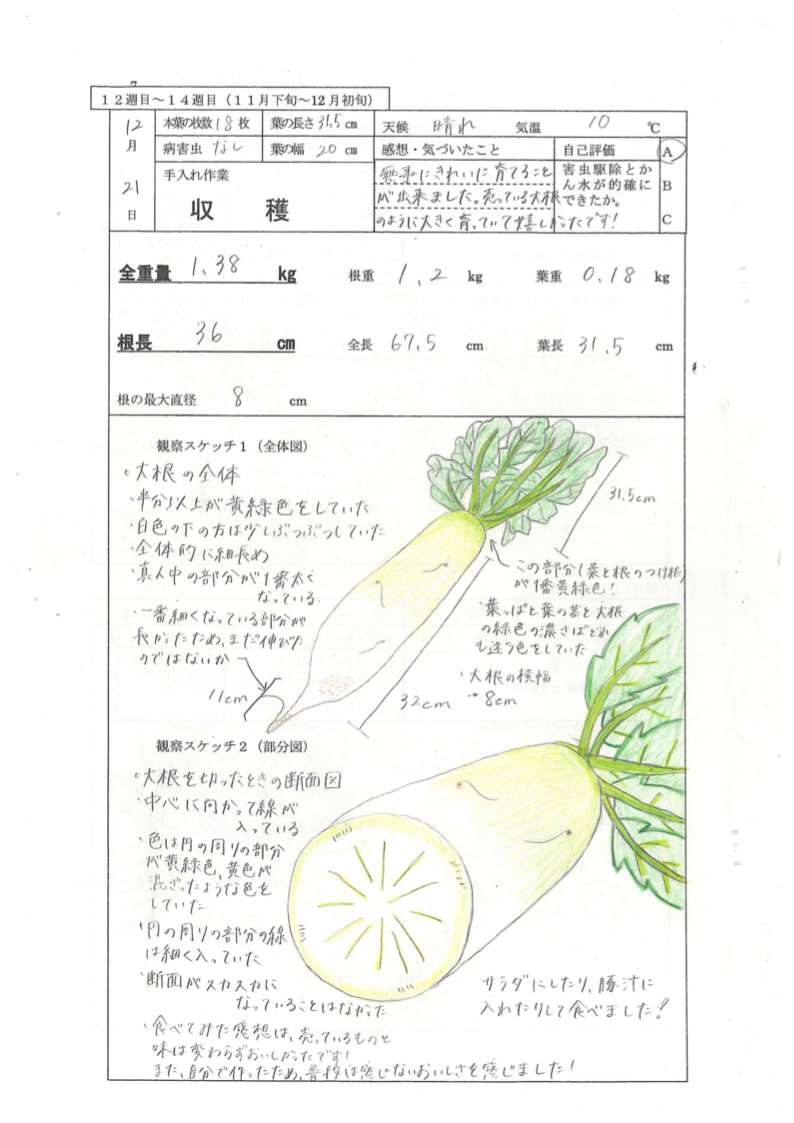 12週目～14週目（11月下旬～12月初旬）
12月21日
本葉の枚数 18枚 葉の長さ 31.5cm
病害虫 なし 葉の幅 20cm
手入れ作業
収穫
天候 晴れ 気温 10 ℃
感想・気づいたこと
無事にきれいに育てること
が出来ました。売っている大根
のように大きく育っていて嬉しかったです!
自己評価
害虫駆除とか
ん水が的確に
できたか。
A
B
C
全重量 1.38 kg 根重 1.2 kg 葉重 0.18 kg
根長 36 cm 全長 67.5 cm 葉長 31.5 cm
根の最大直径 8 cm
観察スケッチ1（全体図）
。大根の全体
・半分以上が黄緑色をしていた
・白色の下の方は少しぶつぶつしていた
・全体的に細長め
・真ん中の部分が1番太く
なっている.
・一番細くなっている部分が
長かったため、まだ伸びた
のではないか
11cm
32cm
31.5cm
この部分(葉と根のつけ根)
が1番黄緑色!
・葉っぱと葉の茎と大根
の緑色の濃さはどれ
も違う色をしていた
・大根の横幅
→8cm
観察スケッチ2（部分図）
。大根を切ったときの断面図
・中心に向かって線が
入っている
・色は円の周りの部分
が黄緑色、黄色が
混ざったような色を
していた
・円の周りの部分の線
は細く入っていた
・断面がスカスカに
なっていることはなかった
・食べてみた感想は、売っているものと
味は変わらずおいしかったです!
また、自分で作ったため、普段は感じないおいしさを感じました!
サラダにしたり、豚汁に
入れたりして食べました!